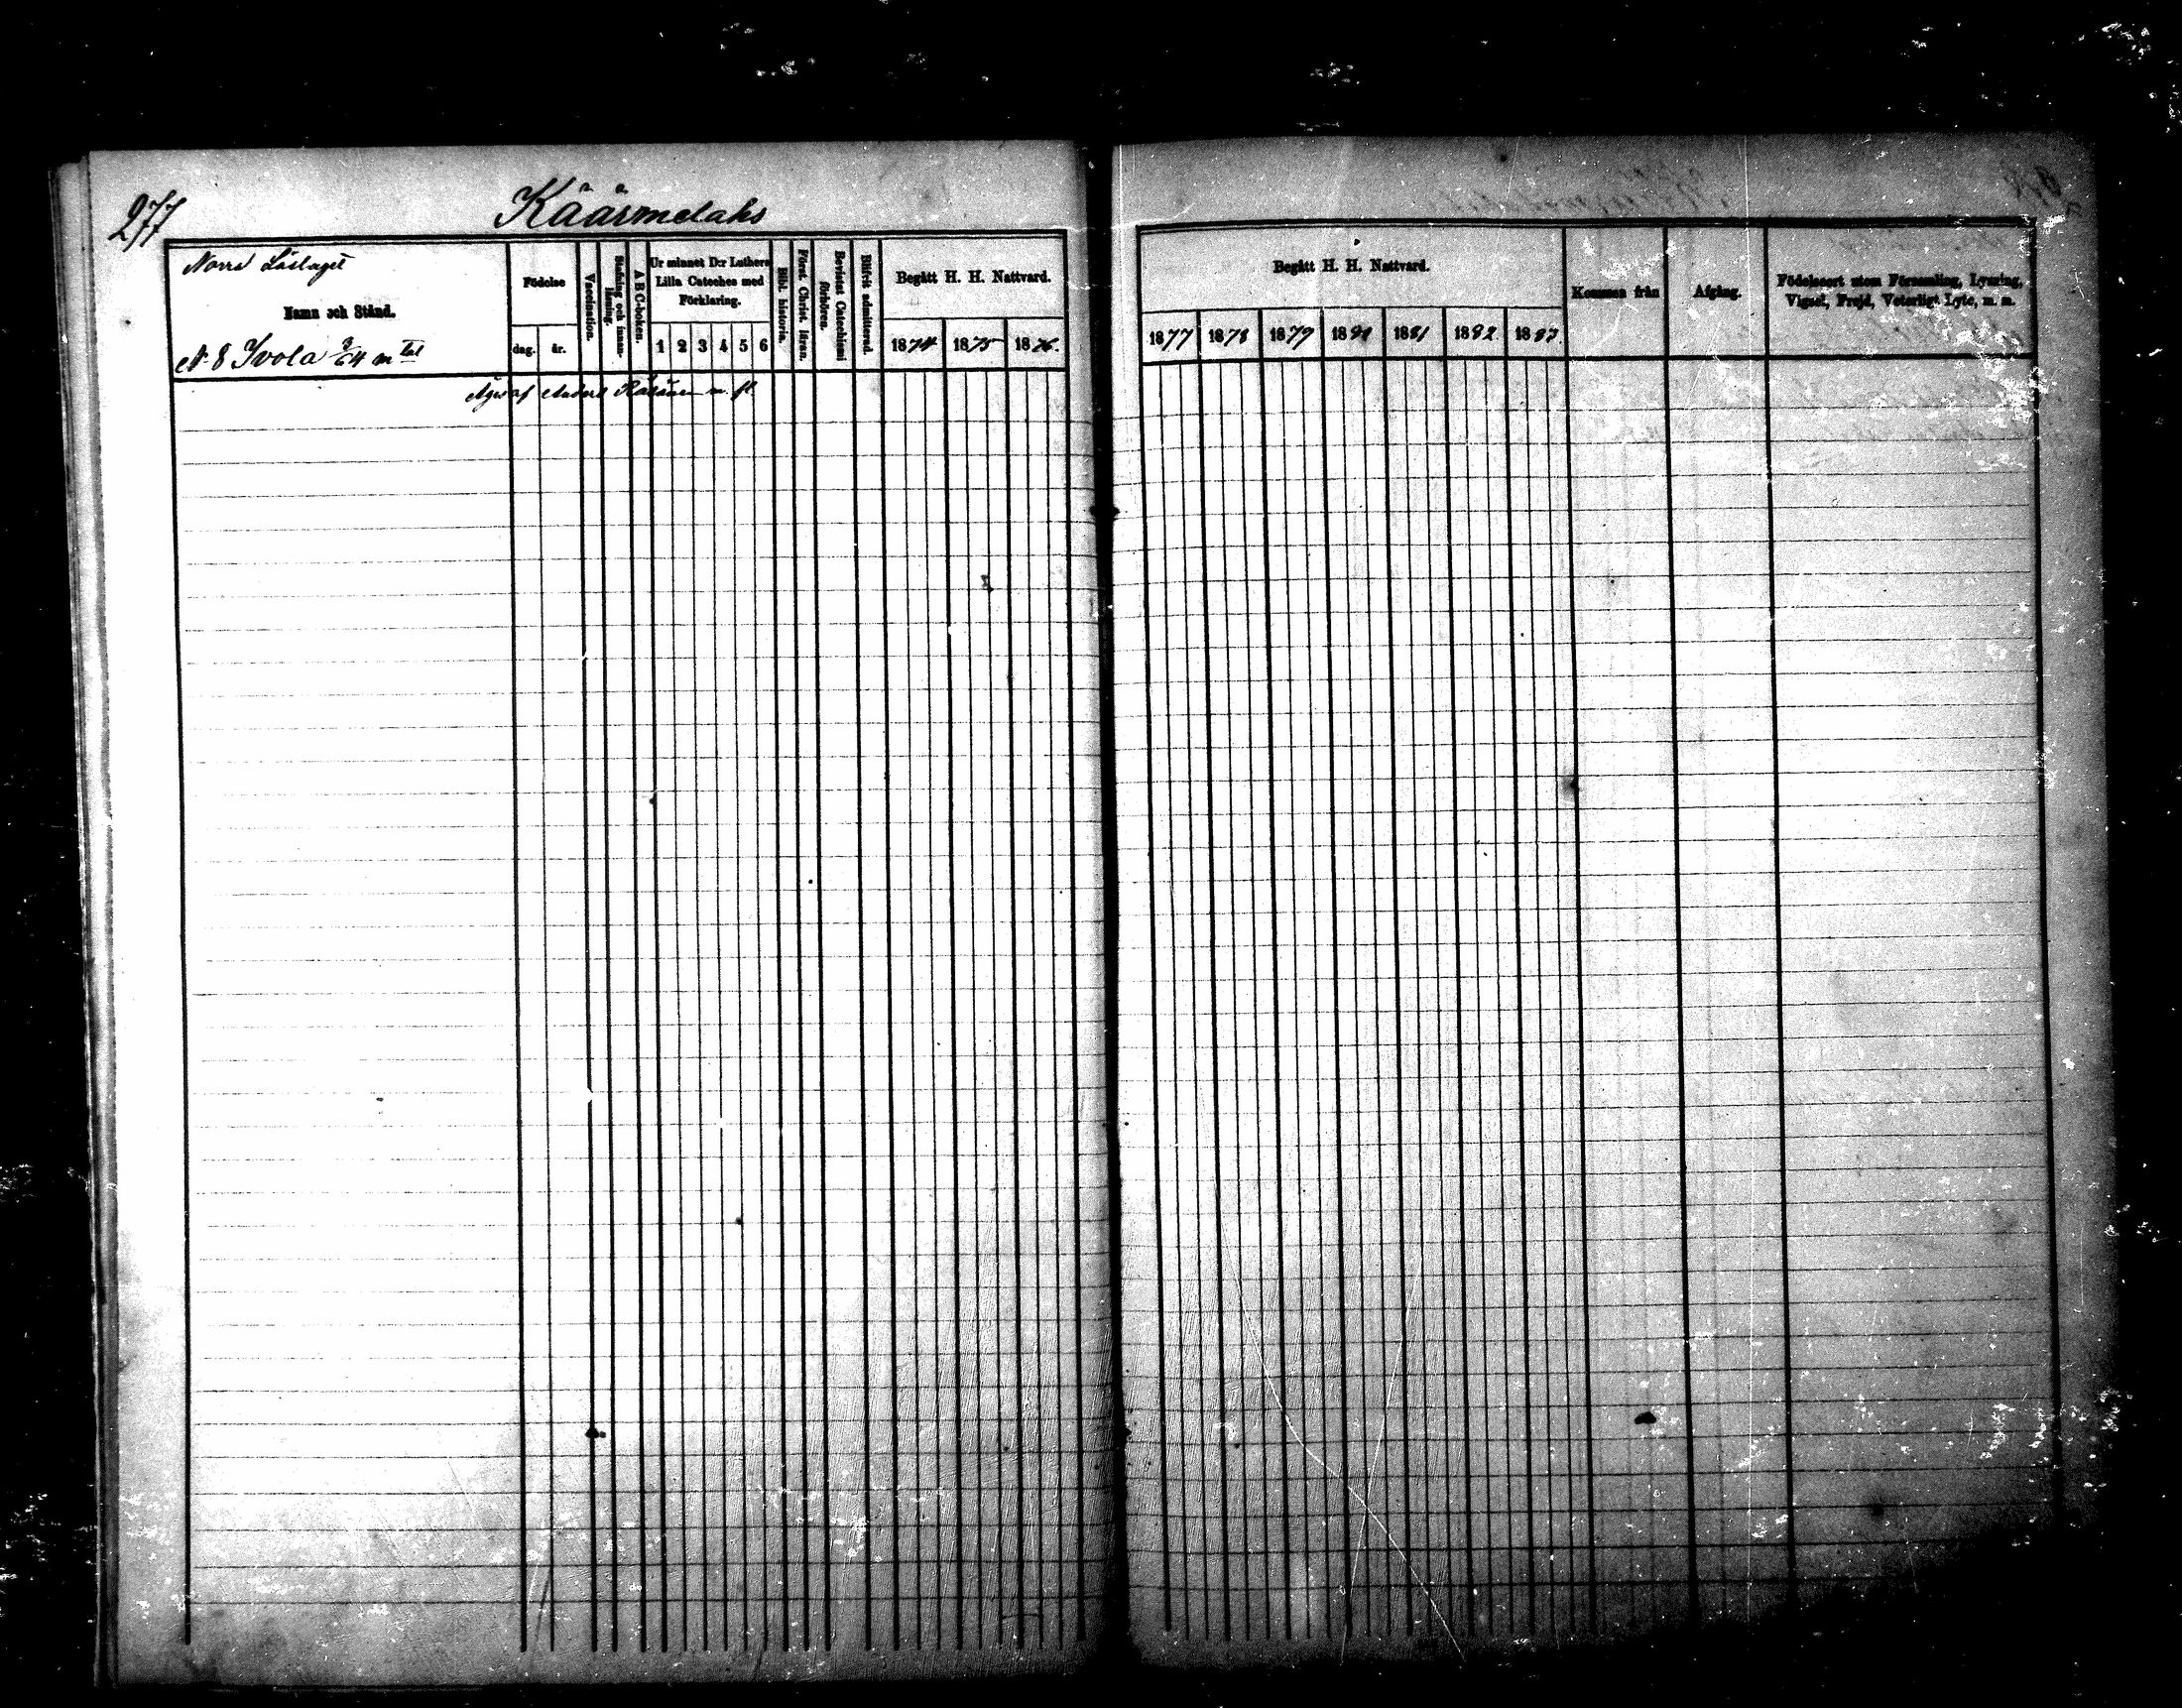 277
Käärmelaks
Norra Läslaget
Namn och Stånd.
N. 8 Ivola 3/64 mtal
Födelse
dag. år.
Vaccination.
Stafning och innan-läsning.
A B C-boken.
Ur minnet D:r Luthers
Lilla Cateches med
Förklaring.
1 2 3 4 5 6
Bibl. historia.
Först. Christ. läran.
Bevistat Catechismi förhören.
Blifvit admitterad.
Begått H. H. Nattvard.
1874 1875 1876.
Äges af Anders Räsänen m. fl.
Begått H. H. Nattvard.
1877 1878 1879 1880 1881 1882. 1883.
Kommen från
Afgång.
Födelseort utom Församling, Lysning,
Vigsel, Frejd, Veterligt Lyte, m. m.